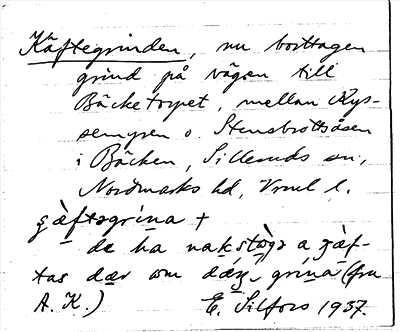 Käftegrinden, nu borttagen
grind på vägen till
Bäcketorpet, mellan Kys-
semyren o. Stensbrottsåsen
i Bäcken, Silleruds sn,
Nordmarks hd, Vrml l.
ʒàftəgrína +
de ha nakstògə a ʒàf-
tas dær om dǽʒ grína (fru
A. K.) E. Silfors 1937.